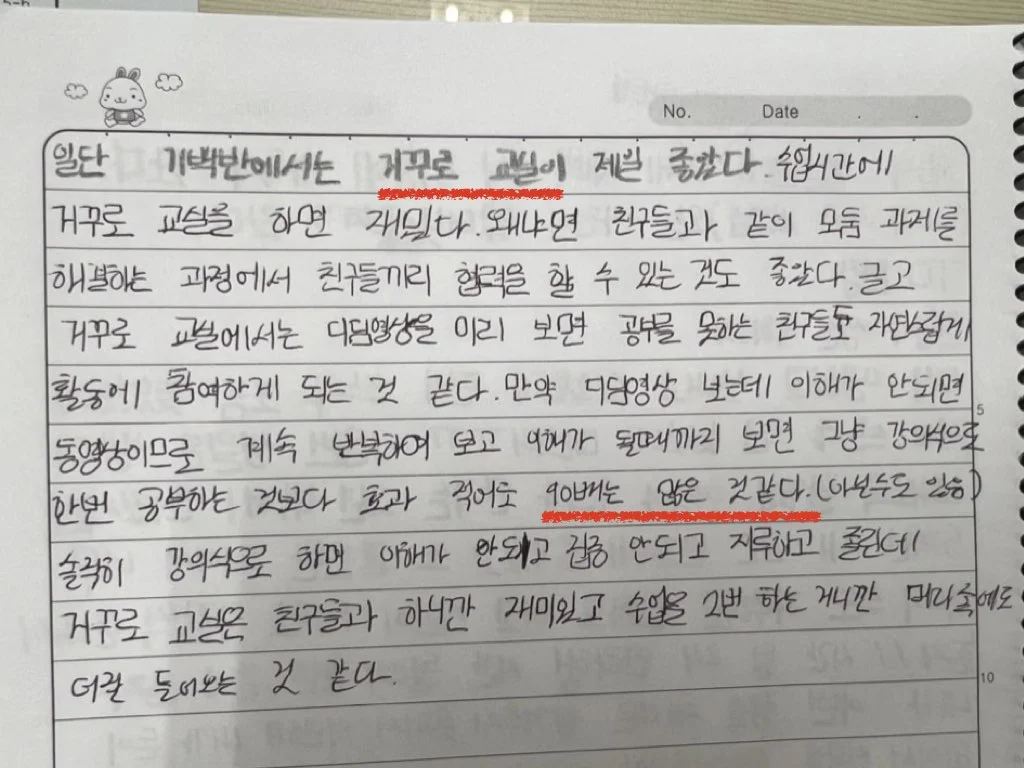 No. Date . .
일단 기백반에서는 거꾸로 교실이 제일 좋았다. 수업시간에
거꾸로 교실을 하면 재밌다. 왜냐면 친구들과 같이 모둠 과제를
해결하는 과정에서 친구들끼리 협력을 할 수 있는 것도 좋았다. 글고
거꾸로 교실에서는 디딤영상을 미리 보면 공부를 못하는 친구들도 자연스럽게
활동에 참여하게 되는 것 같다. 만약 디딤영상 보는데 이해가 안되면
5
동영상이므로 계속 반복하여 보고 이해가 될때까지 보면 그냥 강의식으로
한번 공부하는 것보다 효과 적어도 90배는 많은 것같다. (아닐수도 있음)
솔직히 강의식으로 하면 이해가 안되고 집중 안되고 지루하고 졸린데
거꾸로 교실은 친구들과 하니깐 재미있고 수업을 2번 하는 거니깐 머리속에도
더잘 들어오는 것 같다.
10